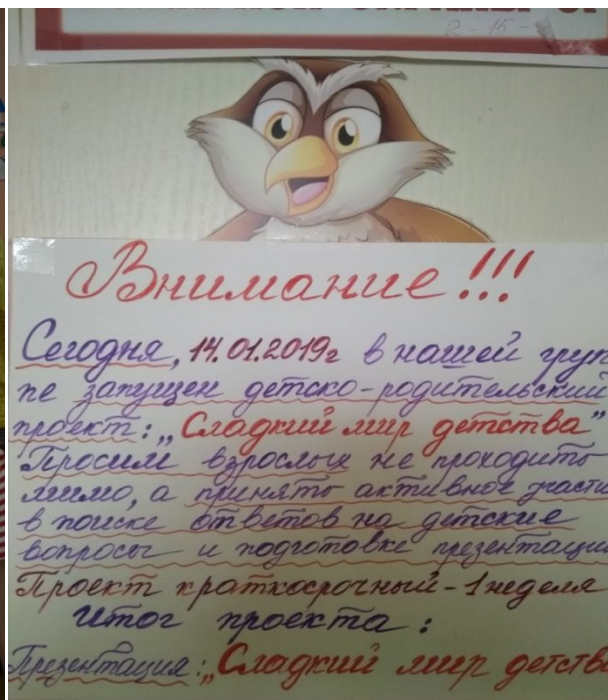 2-15-
Внимание!!!
Сегодня, 14.01.2019г в нашей груп
пе запущен детско-родительский
проект: „Сладкий мир детства"
Просим взрослых не проходить
мимо, а принять активное участи
в поиске ответов на детские
вопросы и подготовке презентации
Проект краткосрочный - 1 неделя
Итог проекта:
Презентация: „Сладкий мир детства